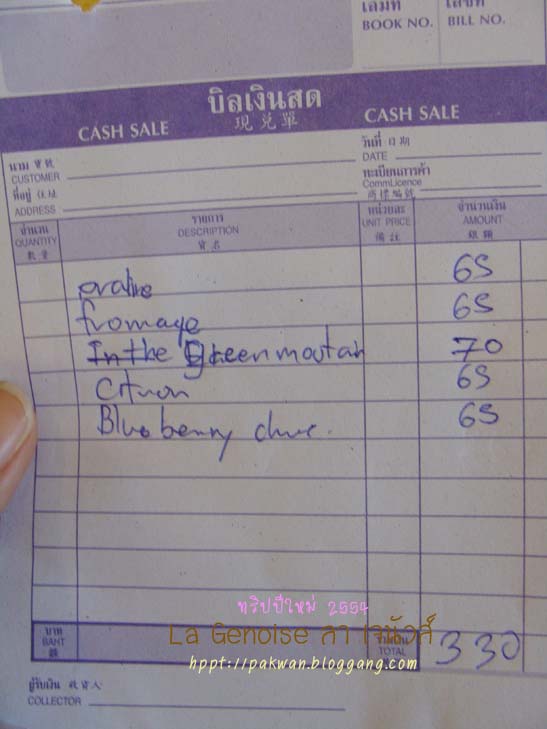 เล่มที่ เลขที่
BOOK NO. BILL NO.
บิลเงินสด
CASH SALE 現兌單 CASH SALE
วันที่ 日期
DATE
นาม 寶號
CUSTOMER
ทะเบียนการค้า
CommLicence
商標編號
ที่อยู่ 住址
ADDRESS
จำนวน รายการ หน่วยละ จำนวนเงิน
QUANTITY DESCRIPTION UNIT PRICE AMOUNT
數量 貨名 備註 銀額
praline 65
fromage 65
In the green moutah 70
Citron 65
Blue berry 65
ทริปปีใหม่ 2554
La Genoise ลา เจนัวส์
บาท รวมเงิน
BAHT TOTAL 330
銖
hppt://pakwan.bloggang.com
ผู้รับเงิน 收貨人
COLLECTOR